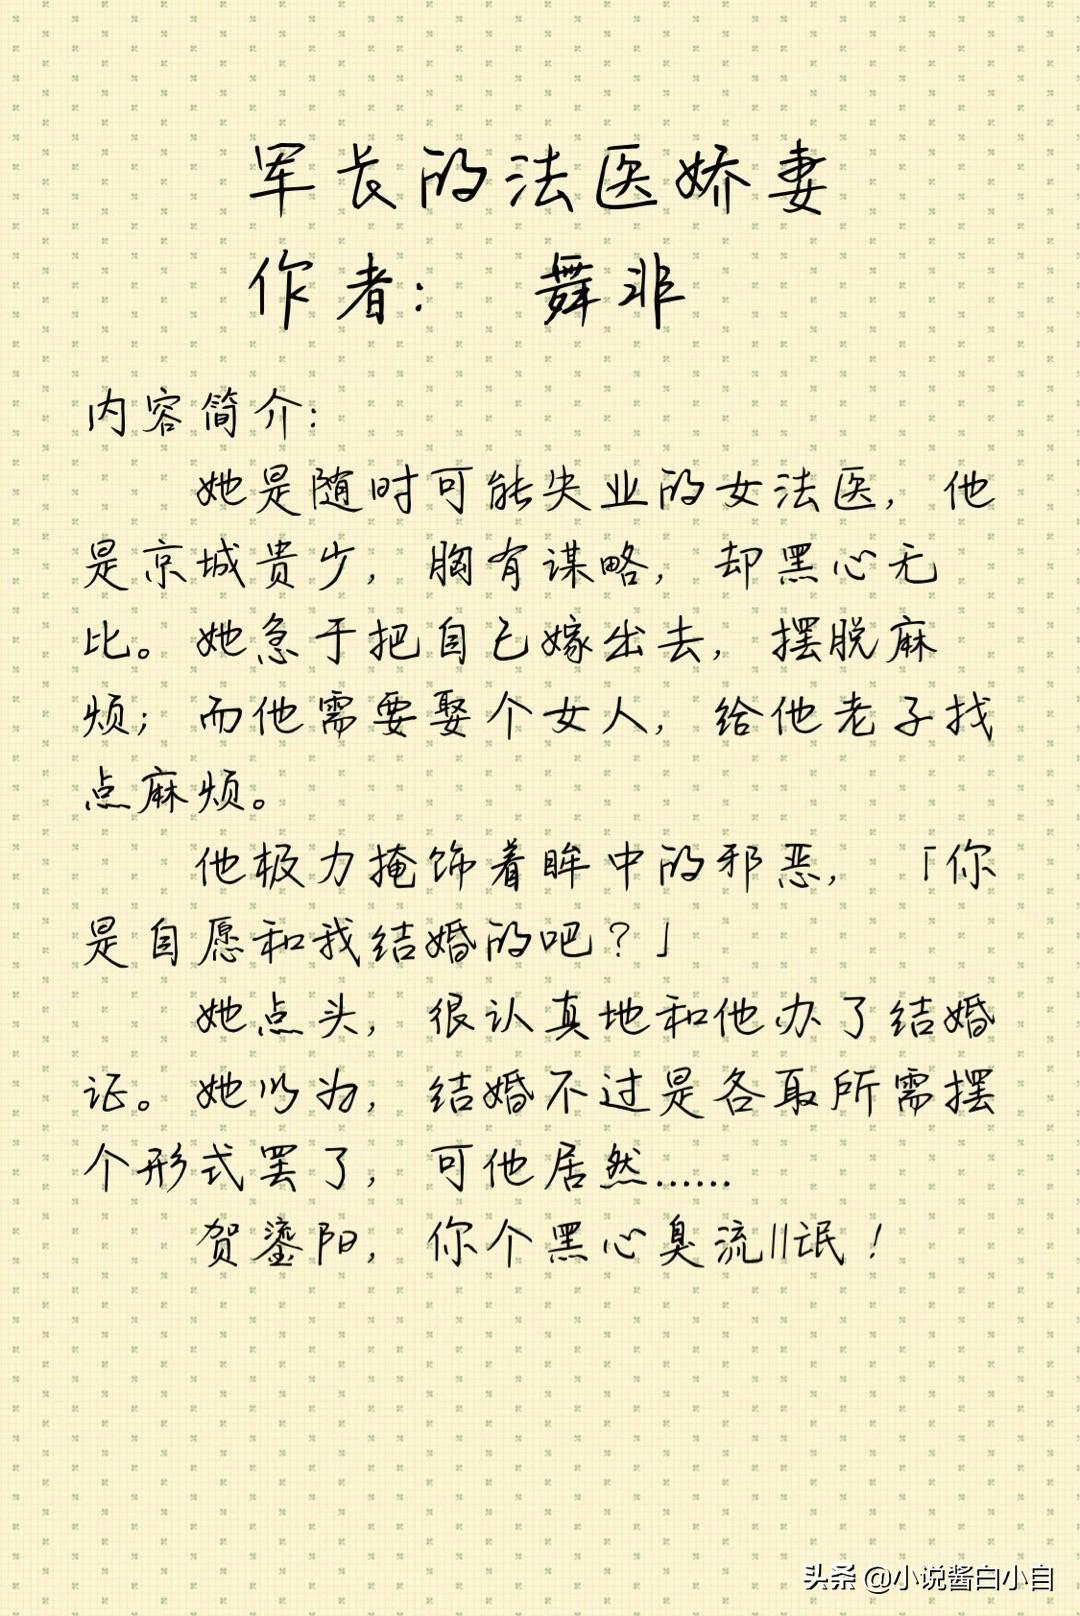 军长的法医娇妻
作者: 舞非
内容简介:
她是随时可能失业的女法医, 他
是京城贵少, 胸有谋略, 却黑心无
比。她急于把自己嫁出去, 摆脱麻
烦; 而他需要娶个女人, 给他老子找
点麻烦。
他极力掩饰着眸中的邪恶, 「你
是自愿和我结婚的吧?」
她点头, 很认真地和他办了结婚
证。她以为, 结婚不过是各取所需摆
个形式罢了, 可他居然......
贺鎏阳, 你个黑心臭流||氓!
头条 @小说酱白小自